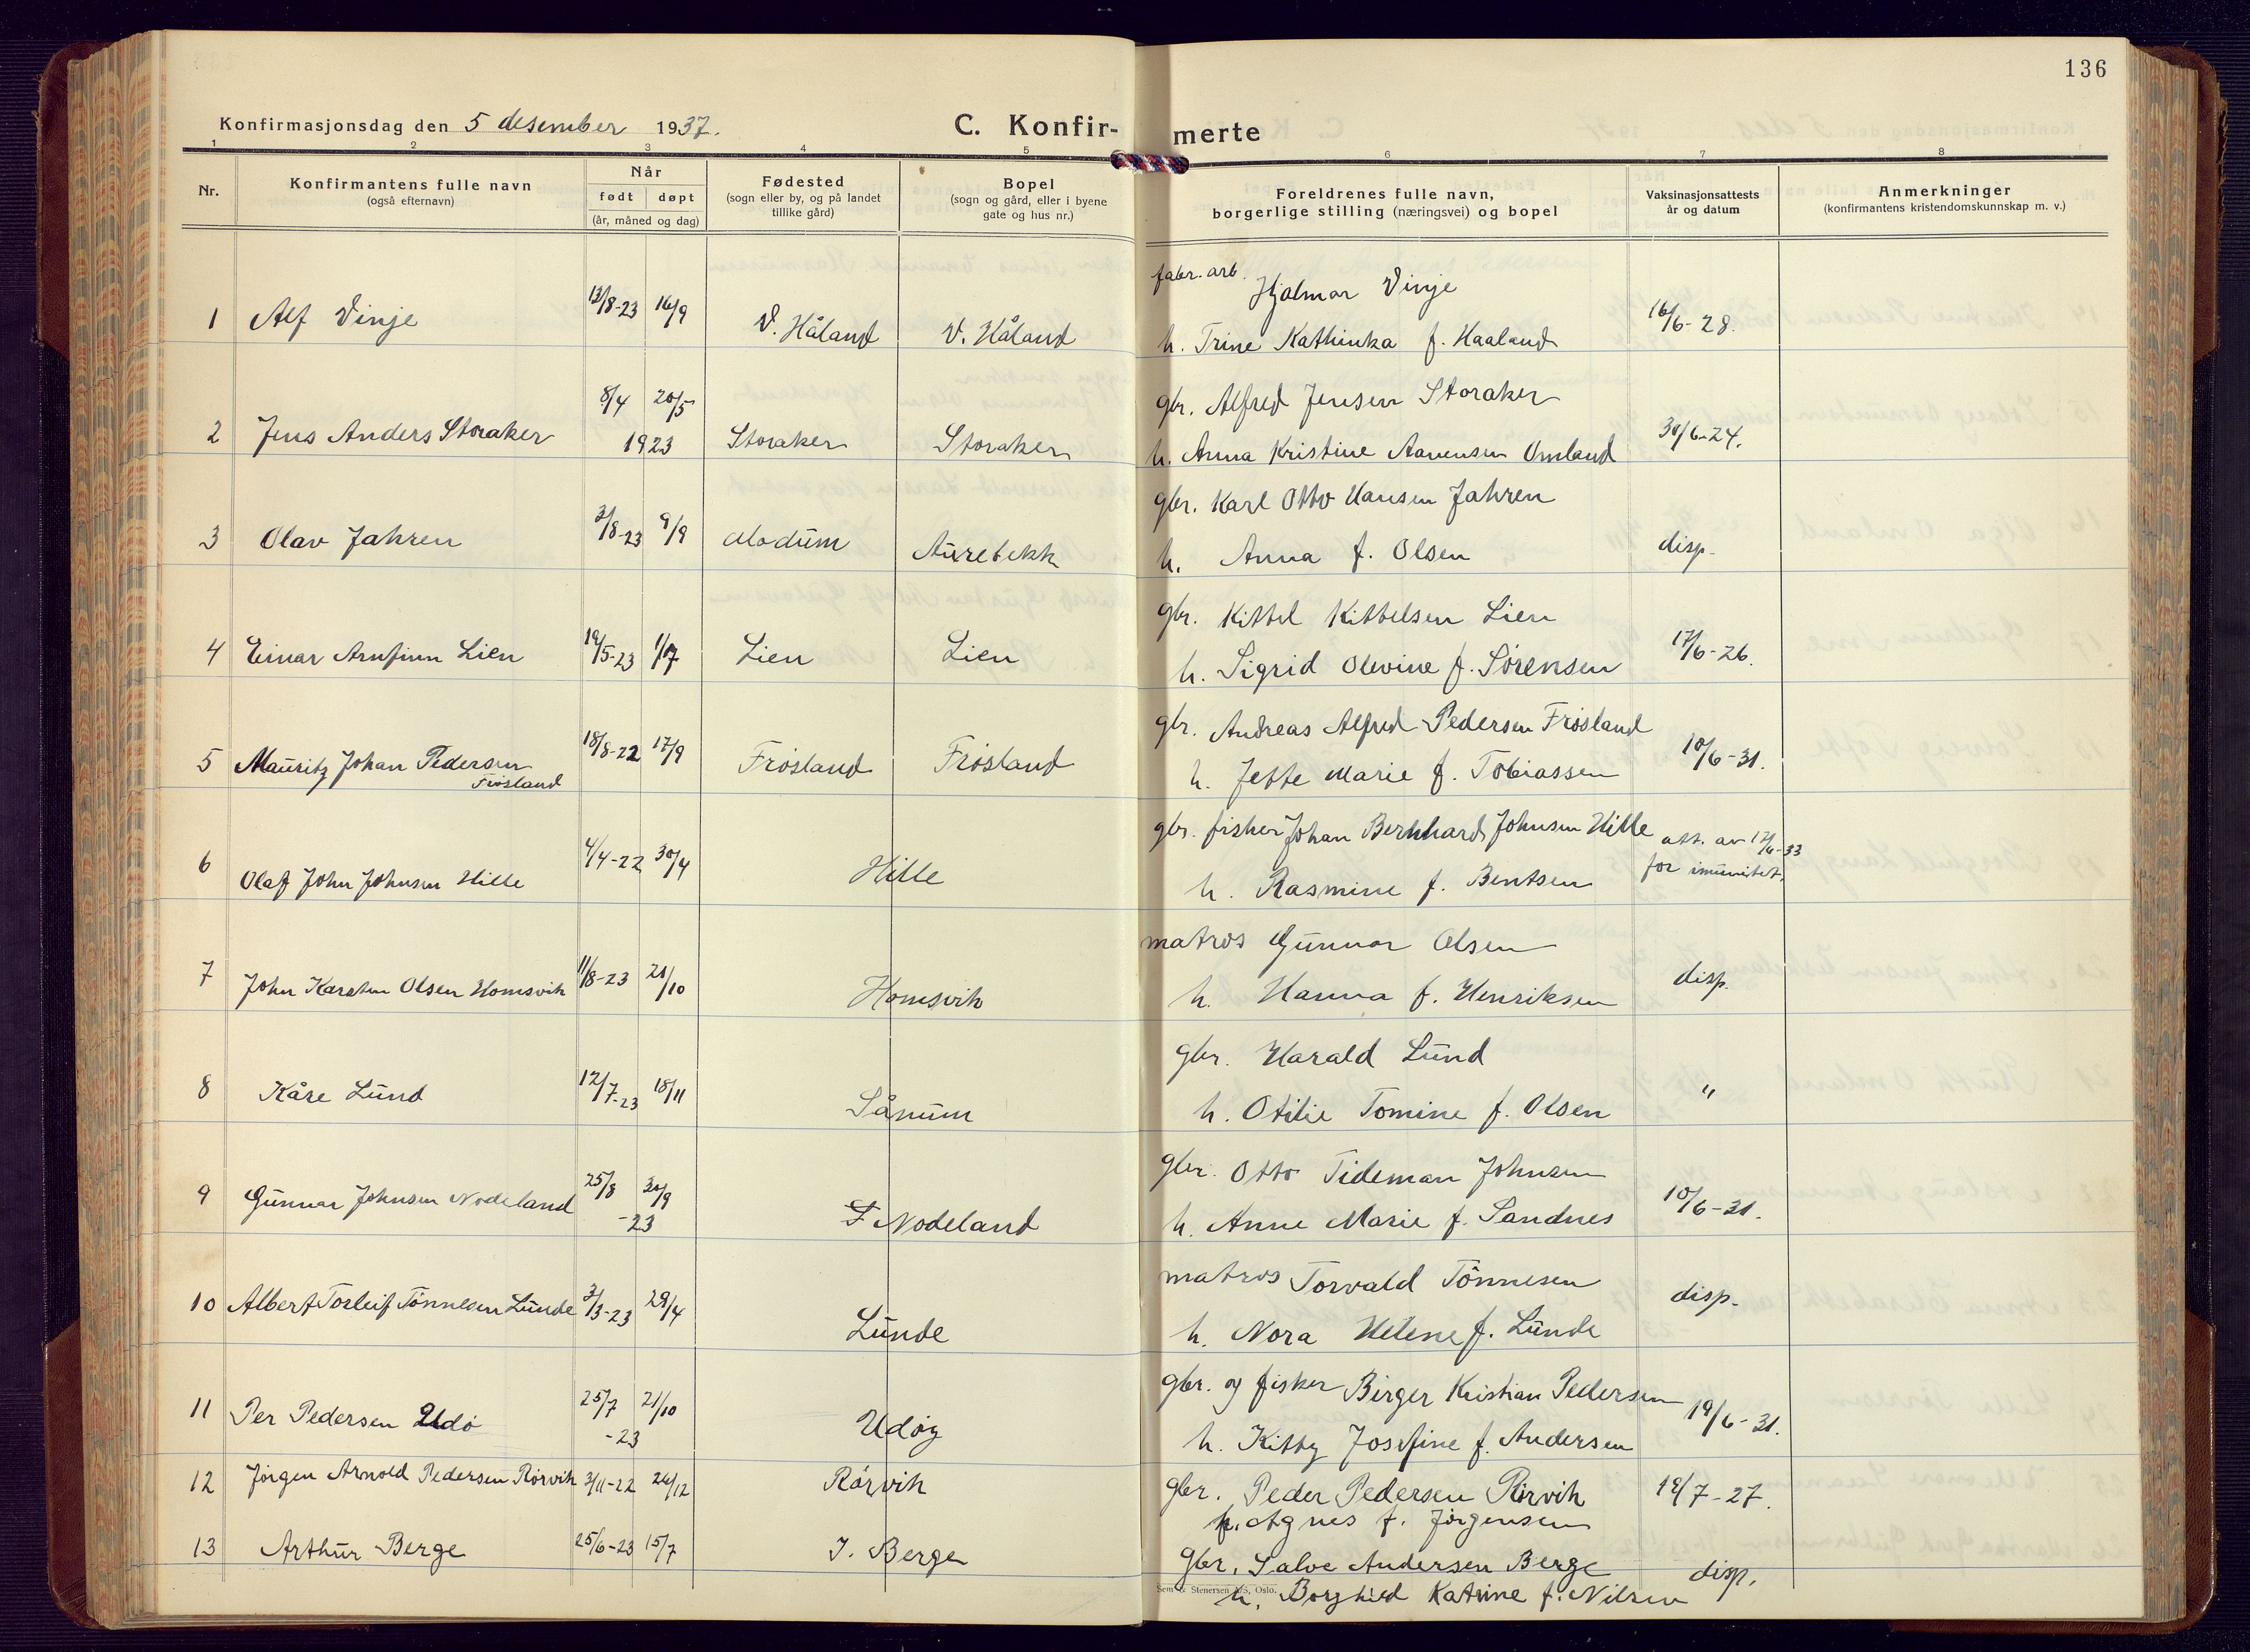 136
Konfirmasjonsdag den 5 desember 1937.
C. Konfir-merte
1 2 3 4 5 6 7 8
Nr.
Konfirmantens fulle navn
(også efternavn)
Når
født døpt
(år, måned og dag)
Fødested
(sogn eller by, og på landet
tillike gård)
Bopel
(sogn og gård, eller i byene
gate og hus nr.)
Foreldrenes fulle navn,
borgerlige stilling (næringsvei) og bopel
Vaksinasjonsattests
år og datum
Anmerkninger
(konfirmantens kristendomskunnskap m. v.)
fabr. arb. Hjalmar Vinje
1 Alf Vinje 13/8-23 16/9 V. Håland V. Håland 16/6-28.
h. Trine Kathinka f. Haaland
gbr. Alfred Jensen Storaker
2 Jens Anders Storaker 8/4 20/5 1923 Storaker Storaker 30/6-24.
h. Anna Kristine Aanensen Omland
gbr. Karl Otto Hansen Jahren
3 Olav Jahren 3/8-23 9/9 Modum Aurebekk disp.
h. Anna f. Olsen
gbr. Kittel Kittelsen Lien
4 Einar Arnfinn Lien 19/5-23 1/7 Lien Lien 17/6-26.
h. Sigrid Olevine f. Sørensen
gbr. Andreas Alfred Pedersen Frøsland
5 Mauritz Johan Pedersen 18/8-22 17/9 Frøsland Frøsland 10/6-31.
Frøsland
h. Jette Marie f. Tobiassen
gbr. fisker Johan Bernhard Johnsen Hille att. av 17/6-33
6 Olaf John Johnsen Hille 4/4-22 30/4 Hille for imunitet.
h. Rasmine f. Bentsen
matros Gunnar Olsen
7 John Karsten Olsen Homsvik 11/8-23 21/10 Homsvik disp.
h. Hanna f. Henriksen
gbr. Harald Lund
8 Kåre Lund 12/7-23 18/11 Sånum "
h. Otilie Tomine f. Olsen
gbr. Otto Tideman Johnsen
9 Gunnar Johnsen Nodeland 25/8 30/9 -23 F Nodeland 10/6-31.
h. Anne Marie f. Sandnes
matros Torvald Tönnesen
10 Albert Torleif Tönnesen Lunde 3/3-23 29/4 Lunde disp.
h. Nora Helene f. Lunde
gbr. og fisker Birger Kristian Pedersen
11 Per Pedersen Udø 25/7 21/10 -23 Udøy 19/6-31.
h. Kitty Josefine f. Andersen
12 Jørgen Arnold Pedersen Rørvik 3/11-22 26/12 Rørvik gbr. Peder Pedersen Rørvik 19/7-27.
h. Agnes f. Jörgensen
13 Arthur Berge 25/6-23 15/7 I. Berge gbr. Salve Andersen Berge disp.
Sem & Stenersen A/S, Oslo.
h. Borghild Katrine f. Nilsen